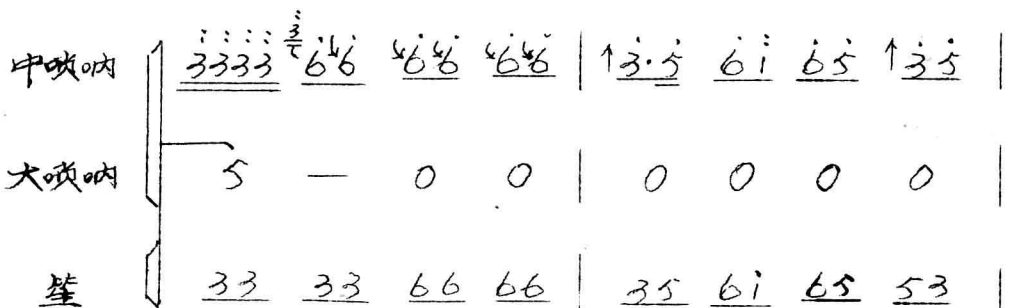 中唢呐 3333 3 66 66 66 | ↑3·5 6i 65 ↑35 |
大唢呐 5 — 0 0 | 0 0 0 0 |
笙 33 33 66 66 | 35 6i 65 53 |